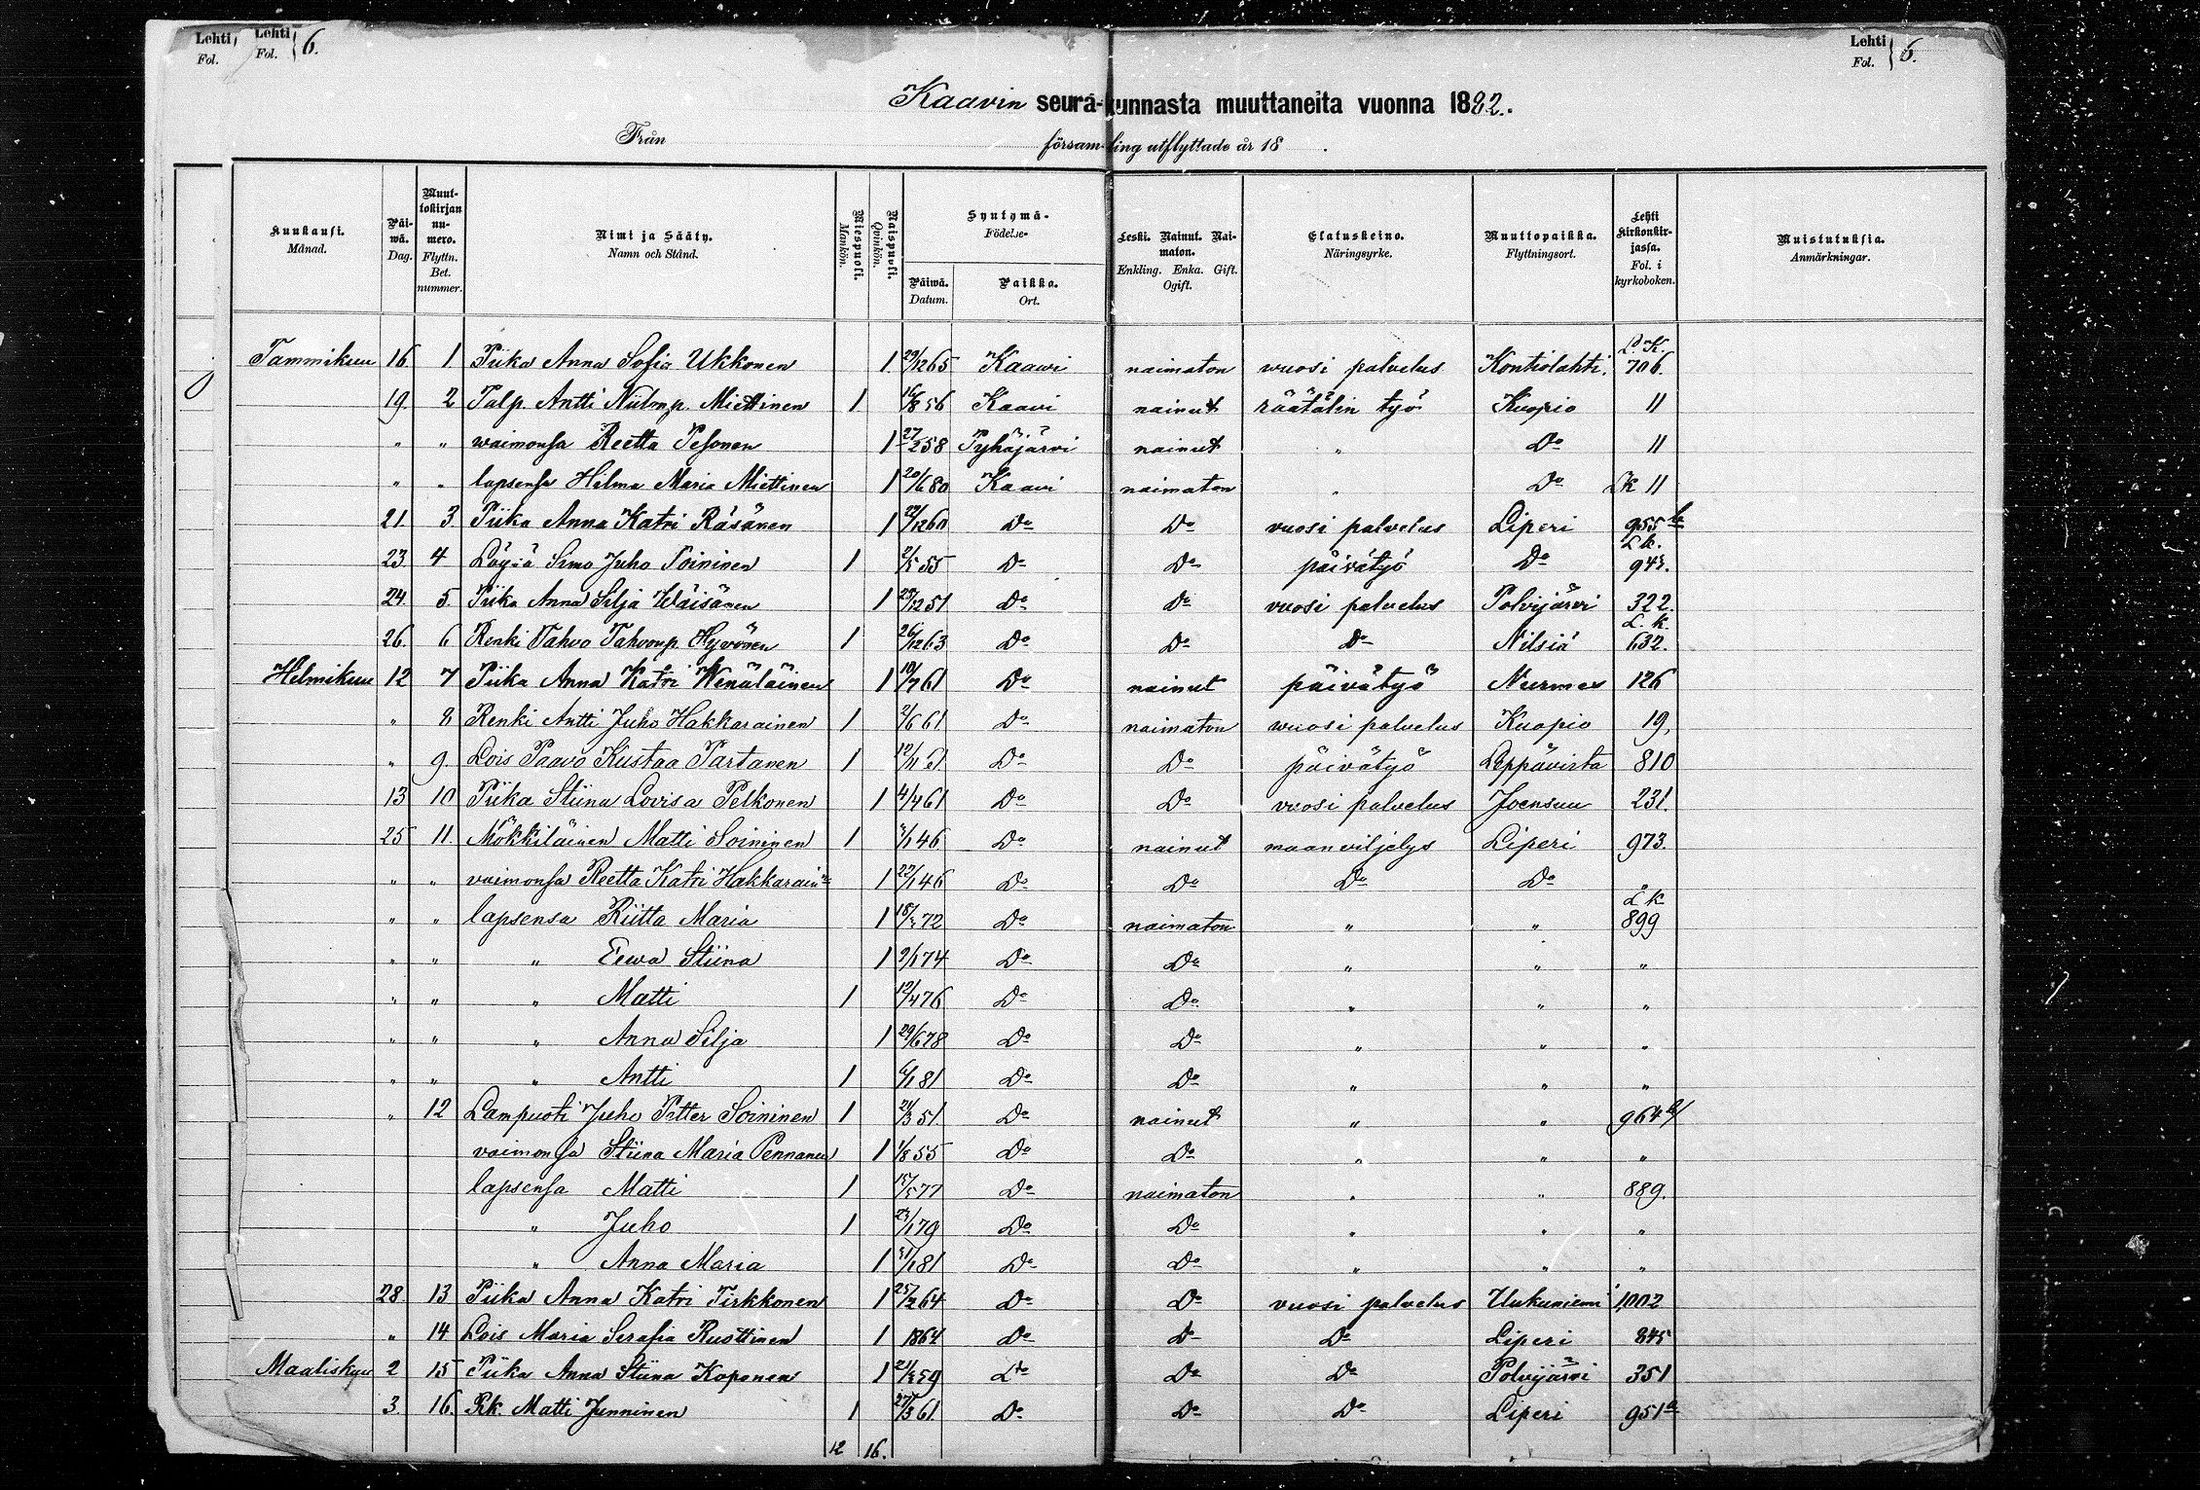 Lehti Fol.
Lehti Fol. 6.
Lehti Fol. 6.
Kaavin seura-kunnasta muuttaneita vuonna 1882.
Från församling utflyttade år 18 .
Kuukausi. Månad. Päiwä. Dag. Muuttokirjan numero. Flyttn. Bet. nummer. Nimi ja Sääty. Namn och Stånd. Miespuoli. Mankön. Naispuoli. Qvinkön. Syntymä- Födelse- Päiwä. Datum. Paikka. Ort. Leski. Nainut. Naimaton. Enkling. Enka. Gift. Ogift. Elatuskeino. Näringsyrke. Muuttopaikka. Flyttningsort. Lehti kirkonkirjassa. Fol. i kyrkoboken. Muistutuksia. Anmärkningar.
Tammikuu 16. 1. Piika Anna Sofia Ukkonen 1 29/12 65 Kaawi naimaton wuosi palvelus Kontiolahti. L. K. 706.
19. 2 Talp. Antti Niilonp. Miettinen 1 16/8 56 Kaavi nainut räätälin työ Kuopio 11
" " waimonsa Reetta Pesonen 1 27/2 58 Pyhäjärvi nainut " Do 11
" " lapsensa Hilma Maria Miettinen 1 20/6 80 Kaavi naimaton " Do Lk 11
21 3 Piika Anna Katri Räsänen 1 22/12 60 Do Do vuosi palvelus Liperi 955 b
23. 4 Simo Juho Toininen 1 2/5 55 Do Do päivätyö Do Lk. 943.
24. 5. Piika Anna Silja Wäisänen 1 29/12 51 Do Do vuosi palvelus Polvijärvi 322.
26. 6 Renki Tahvo Tahvonp. Hyvönen 1 26/12 63 Do Do Do Nilsiä L. k. 632.
Helmikuu 12 7 Piika Anna Katri Wenäläinen 1 10/7 61 Do nainut päivätyö Nurmes 126
" 8 Renki Antti Juho Hakkarainen 1 2/6 61 Do naimaton wuosi palvelus Kuopio 19,
" 9. Lois Paavo Kustaa Partanen 1 12/11 61 Do Do päivätyö Leppävirta 810
13 10 Piika Stiina Lovisa Pelkonen 1 4/4 61 Do Do vuosi palvelus Joensuu 231.
25 11. Mökkiläinen Matti Soininen 1 /1 46 Do nainut maanviljelys Liperi 973.
" " vaimonsa Reetta Katri Hakkarain 1 23/1 46 Do Do Do Do
" " lapsensa Riitta Maria 1 18/ 72 Do naimaton " " Lk 899
" " " Eewa Stiina 1 9/1 74 Do Do " " "
" " " Matti 1 12/4 76 Do Do " " "
" " " Anna Silja 1 29/6 78 Do Do " " "
" " " Antti 1 6/1 81 Do Do " " "
" 12 Lampuoti Juho Pitter Soininen 1 21/3 51. Do nainut " " 964 b/
vaimonsa Stiina Maria Pennanen 1 1/8 55 Do Do " " "
lapsensa Matti 1 15/5 77 Do naimaton " " 889.
" Juho 1 23/1 79 Do Do " " "
" Anna Maria 1 31/1 81 Do Do " " "
28. 13 Piika Anna Katri Tirkkonen 1 25/2 64 Do Do vuosi palvelus Uukuniemi 1,002
" 14 Lois Maria Serafia Ruottinen 1 1864 Do Do Do Liperi 845
Maaliskuu 2 15 Piika Anna Stiina Koponen 1 21/ 59 Do Do Do Polvijärvi 351
3. 16. Rk. Matti Junninen 1 27/3 61 Do Do Do Liperi 951 a
12 16.